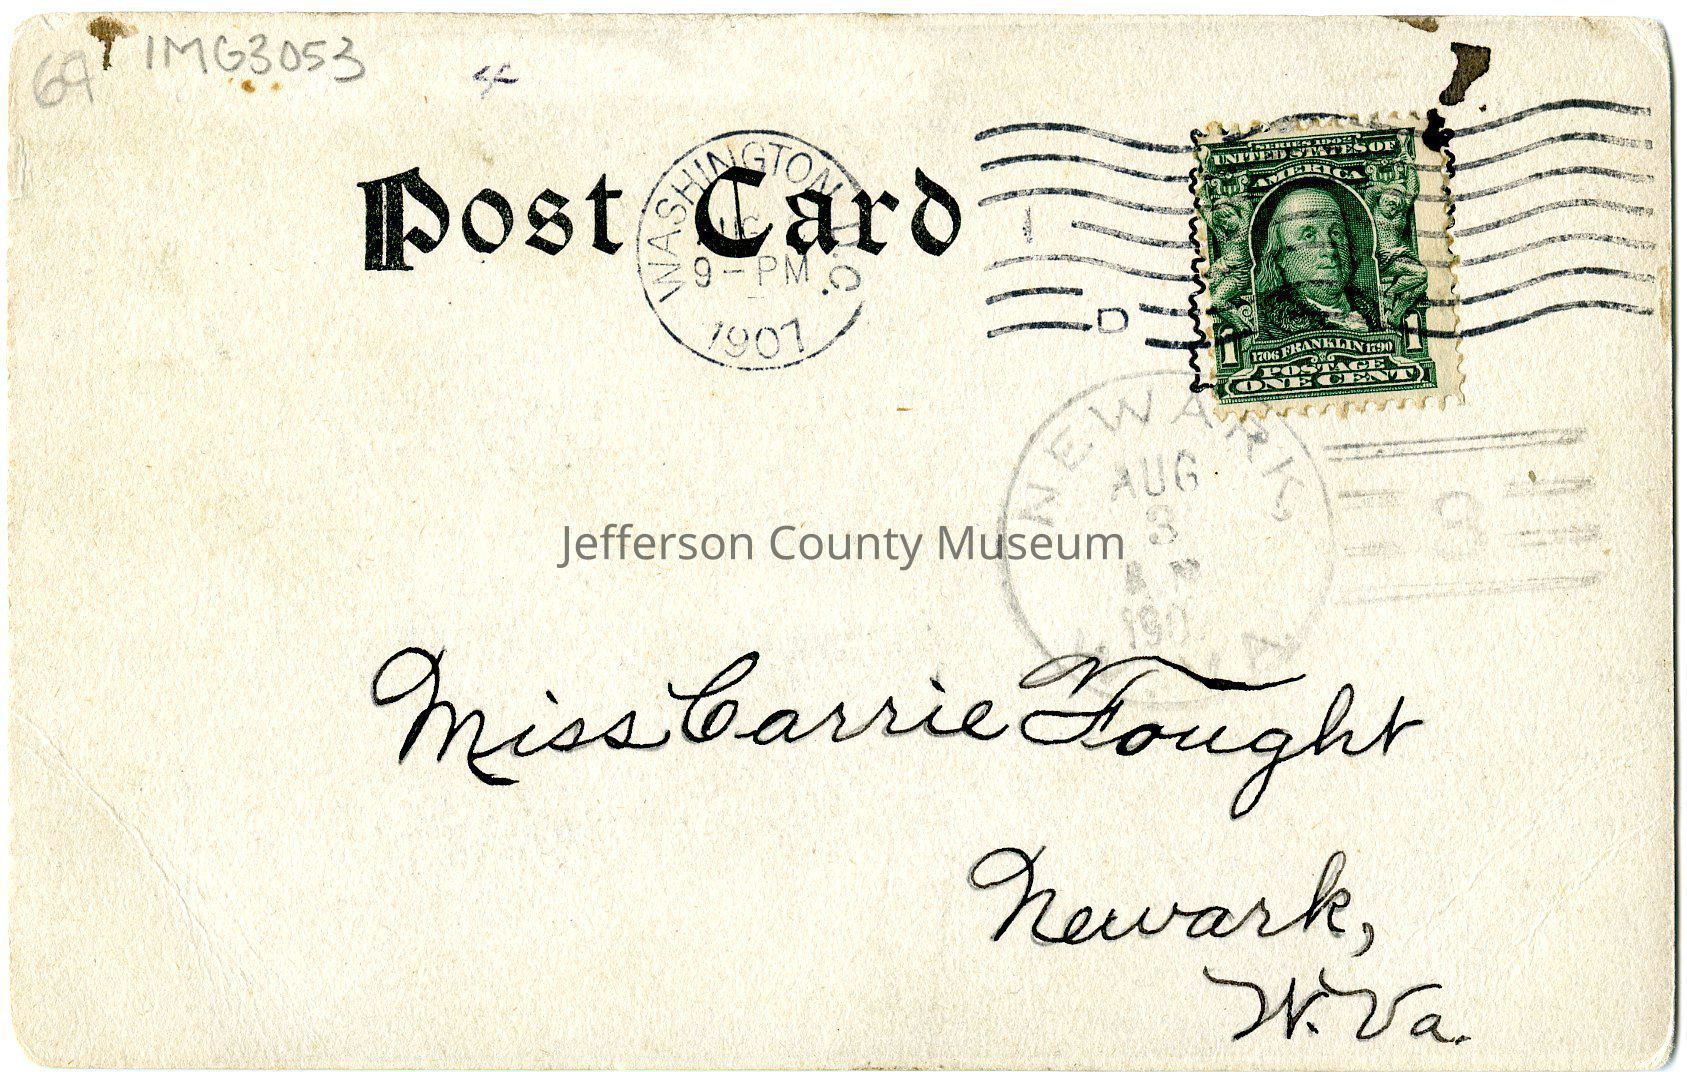 69 IMG3053
Post Card
WASHINGTON, D.C.
9-PM
1907
SERIES 1902
UNITED STATES OF
AMERICA
1 1
1706 FRANKLIN 1790
POSTAGE
ONE CENT
D
NEWARK
AUG
3
190
Jefferson County Museum
Miss Carrie Fought
Newark,
W. Va.